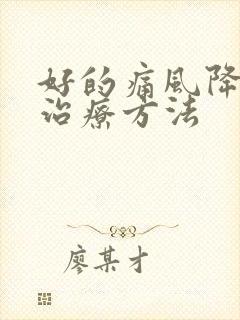 好的痛风降
治疗方法
廖某才